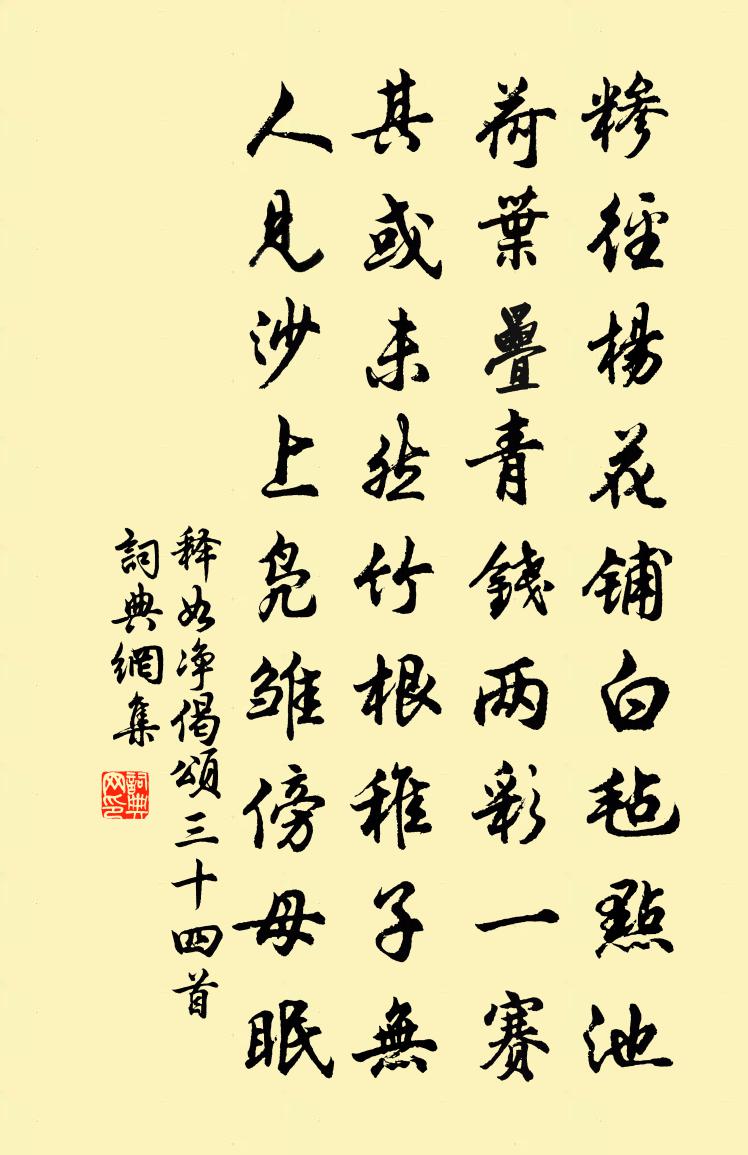 糝徑楊花鋪白毡點池
荷葉疊青錢两彩一賽
其或未然竹根稚子無
人見沙上凫雛傍母眠
释如净偈頌三十四首
詞典網集
詞典
网印